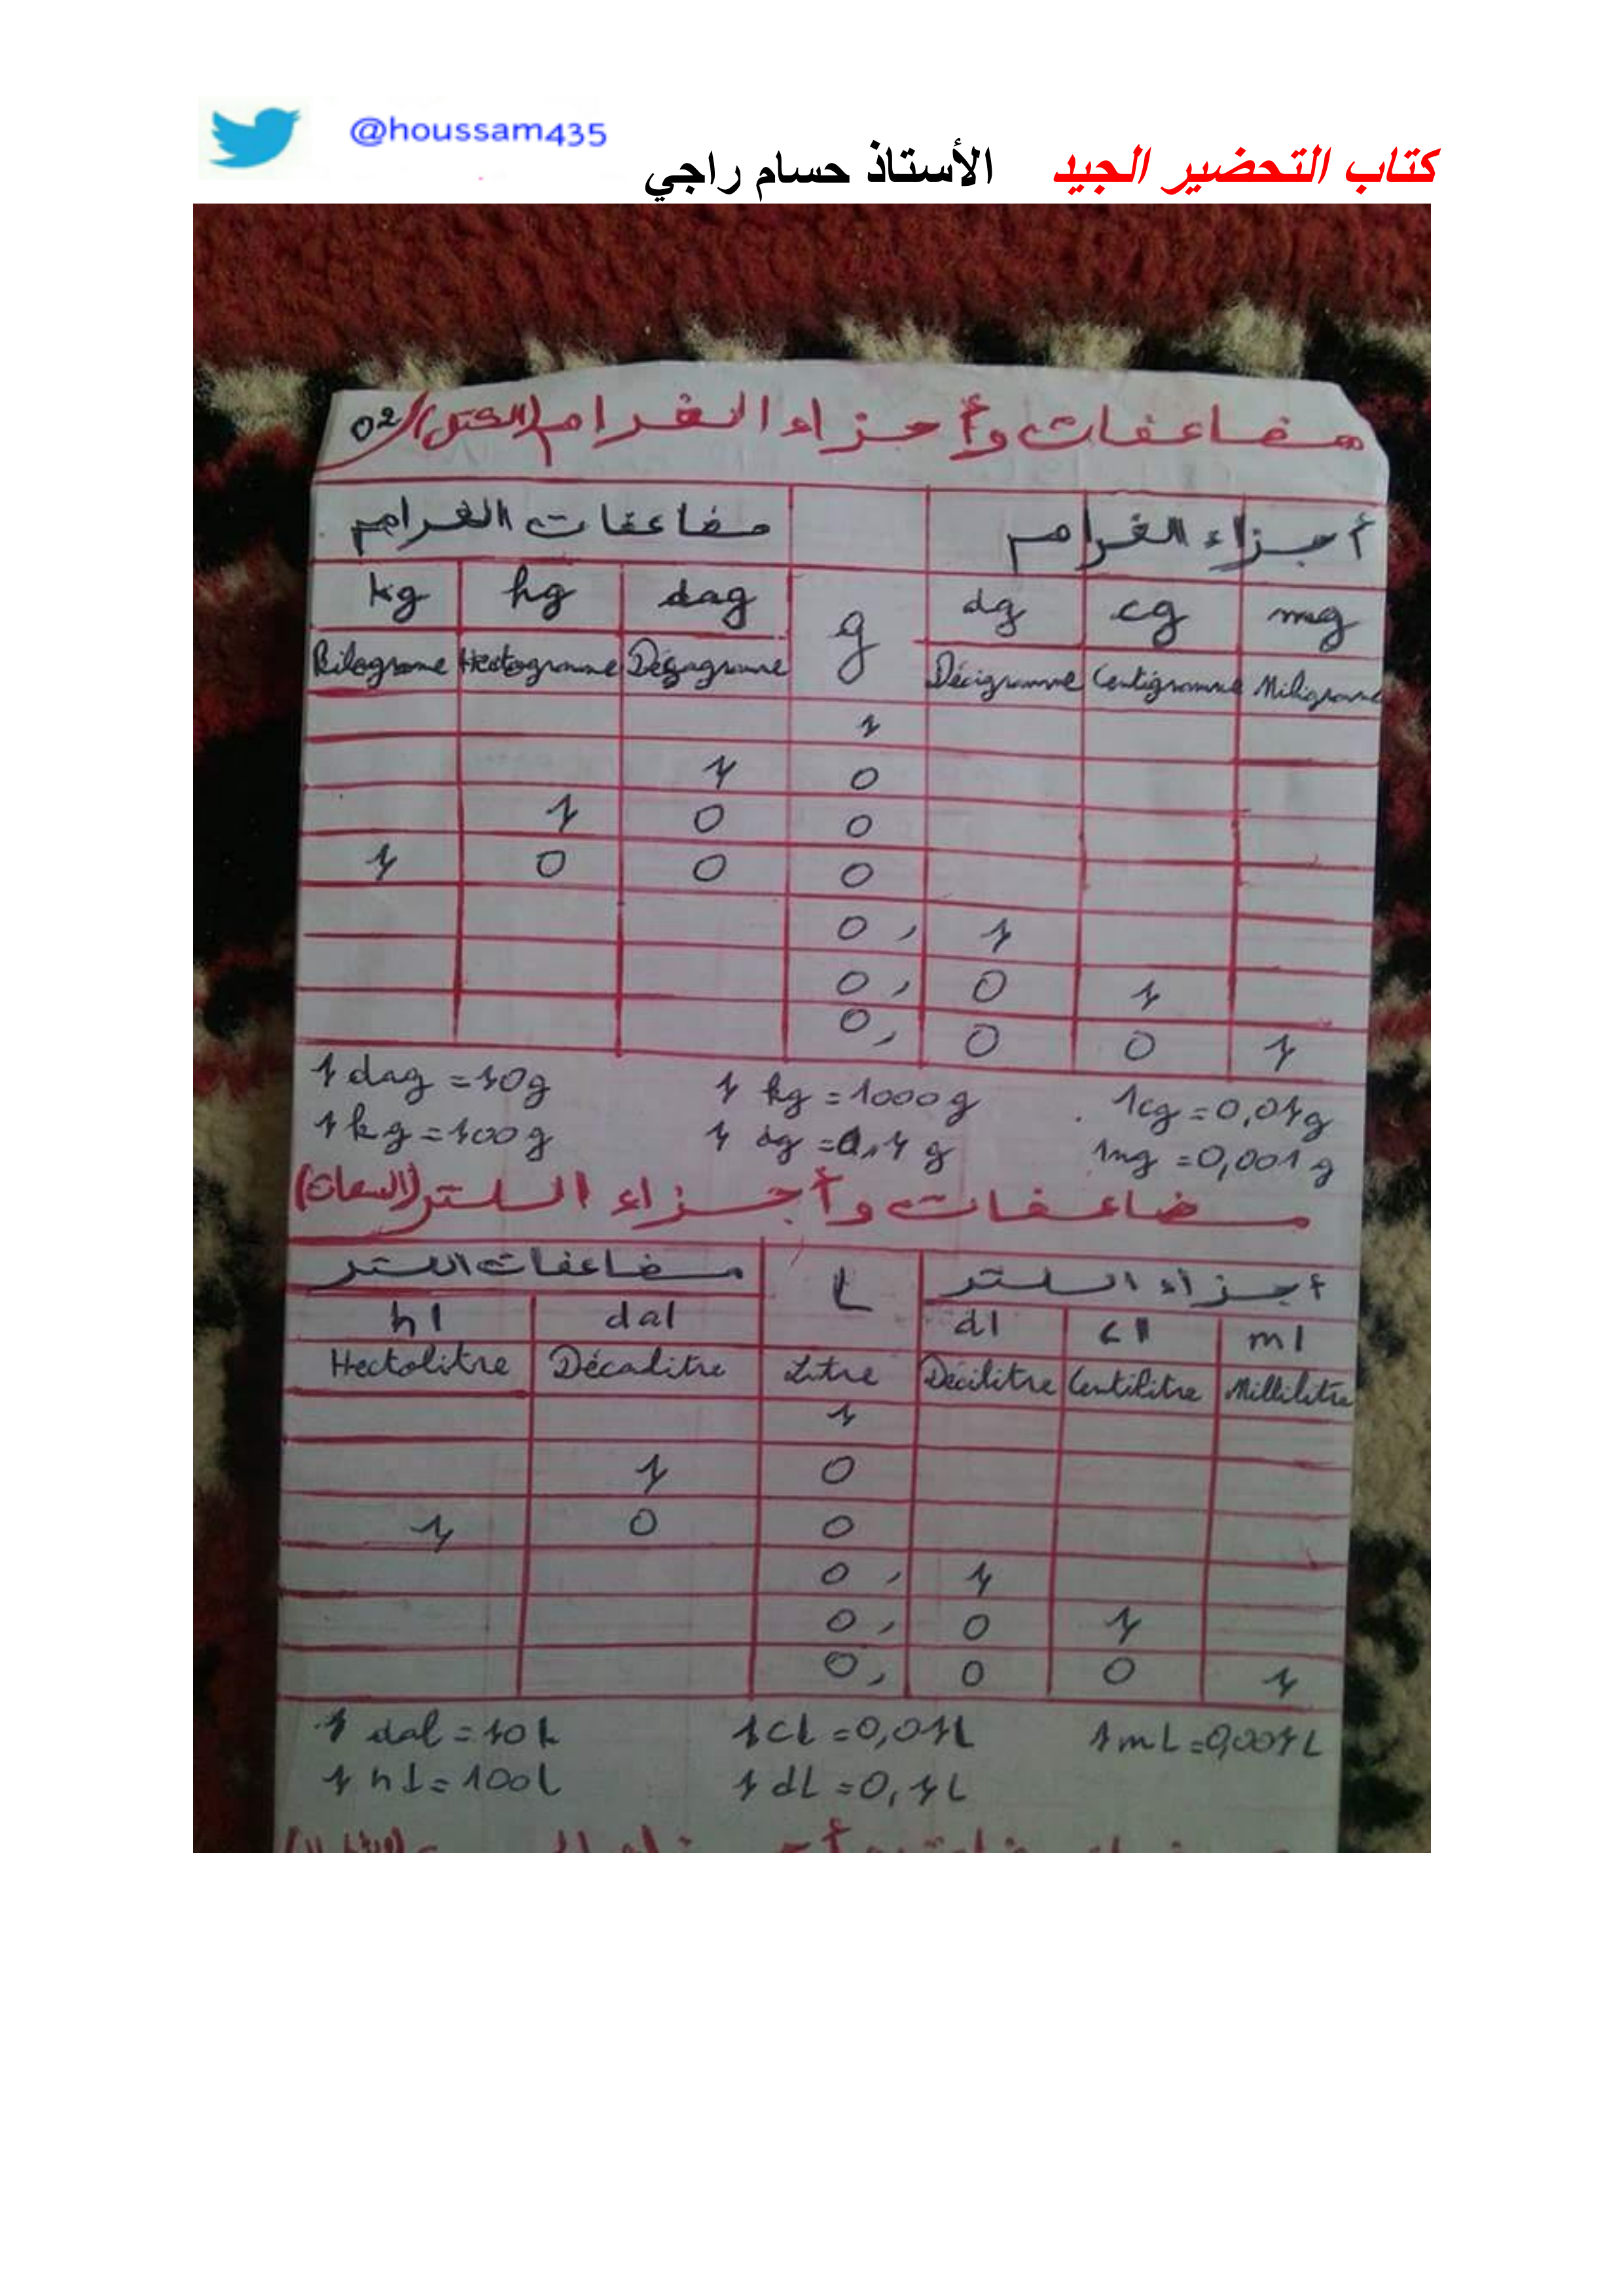 @houssam435
كتاب التحضير الجيد الأستاذ حسام راجي
مضاعفات وأجزاء الغرام (الكتل) 02
مضاعفات الغرام أجزاء الغرام
kg hg dag g dg cg mg
Kilograme Hectogramme Décagramme Décigramme Centigramme Miligramme
1
1 0
1 0 0
1 0 0 0
0, 1
0, 0 1
0, 0 0 1
1 dag = 10g 1 kg = 1000g 1cg = 0,01g
1 kg = 100g 1 dg = 0,1 g 1mg = 0,001g
مضاعفات وأجزاء اللتر (السعات)
مضاعفات اللتر L أجزاء اللتر
hl dal dl cl ml
Hectolitre Décalitre Litre Décilitre Centilitre Millilitre
1
1 0
1 0 0
0, 1
0, 0 1
0, 0 0 1
1 dal = 10L 1cL = 0,01L 1mL = 0,001L
1 hL = 100L 1 dL = 0,1L